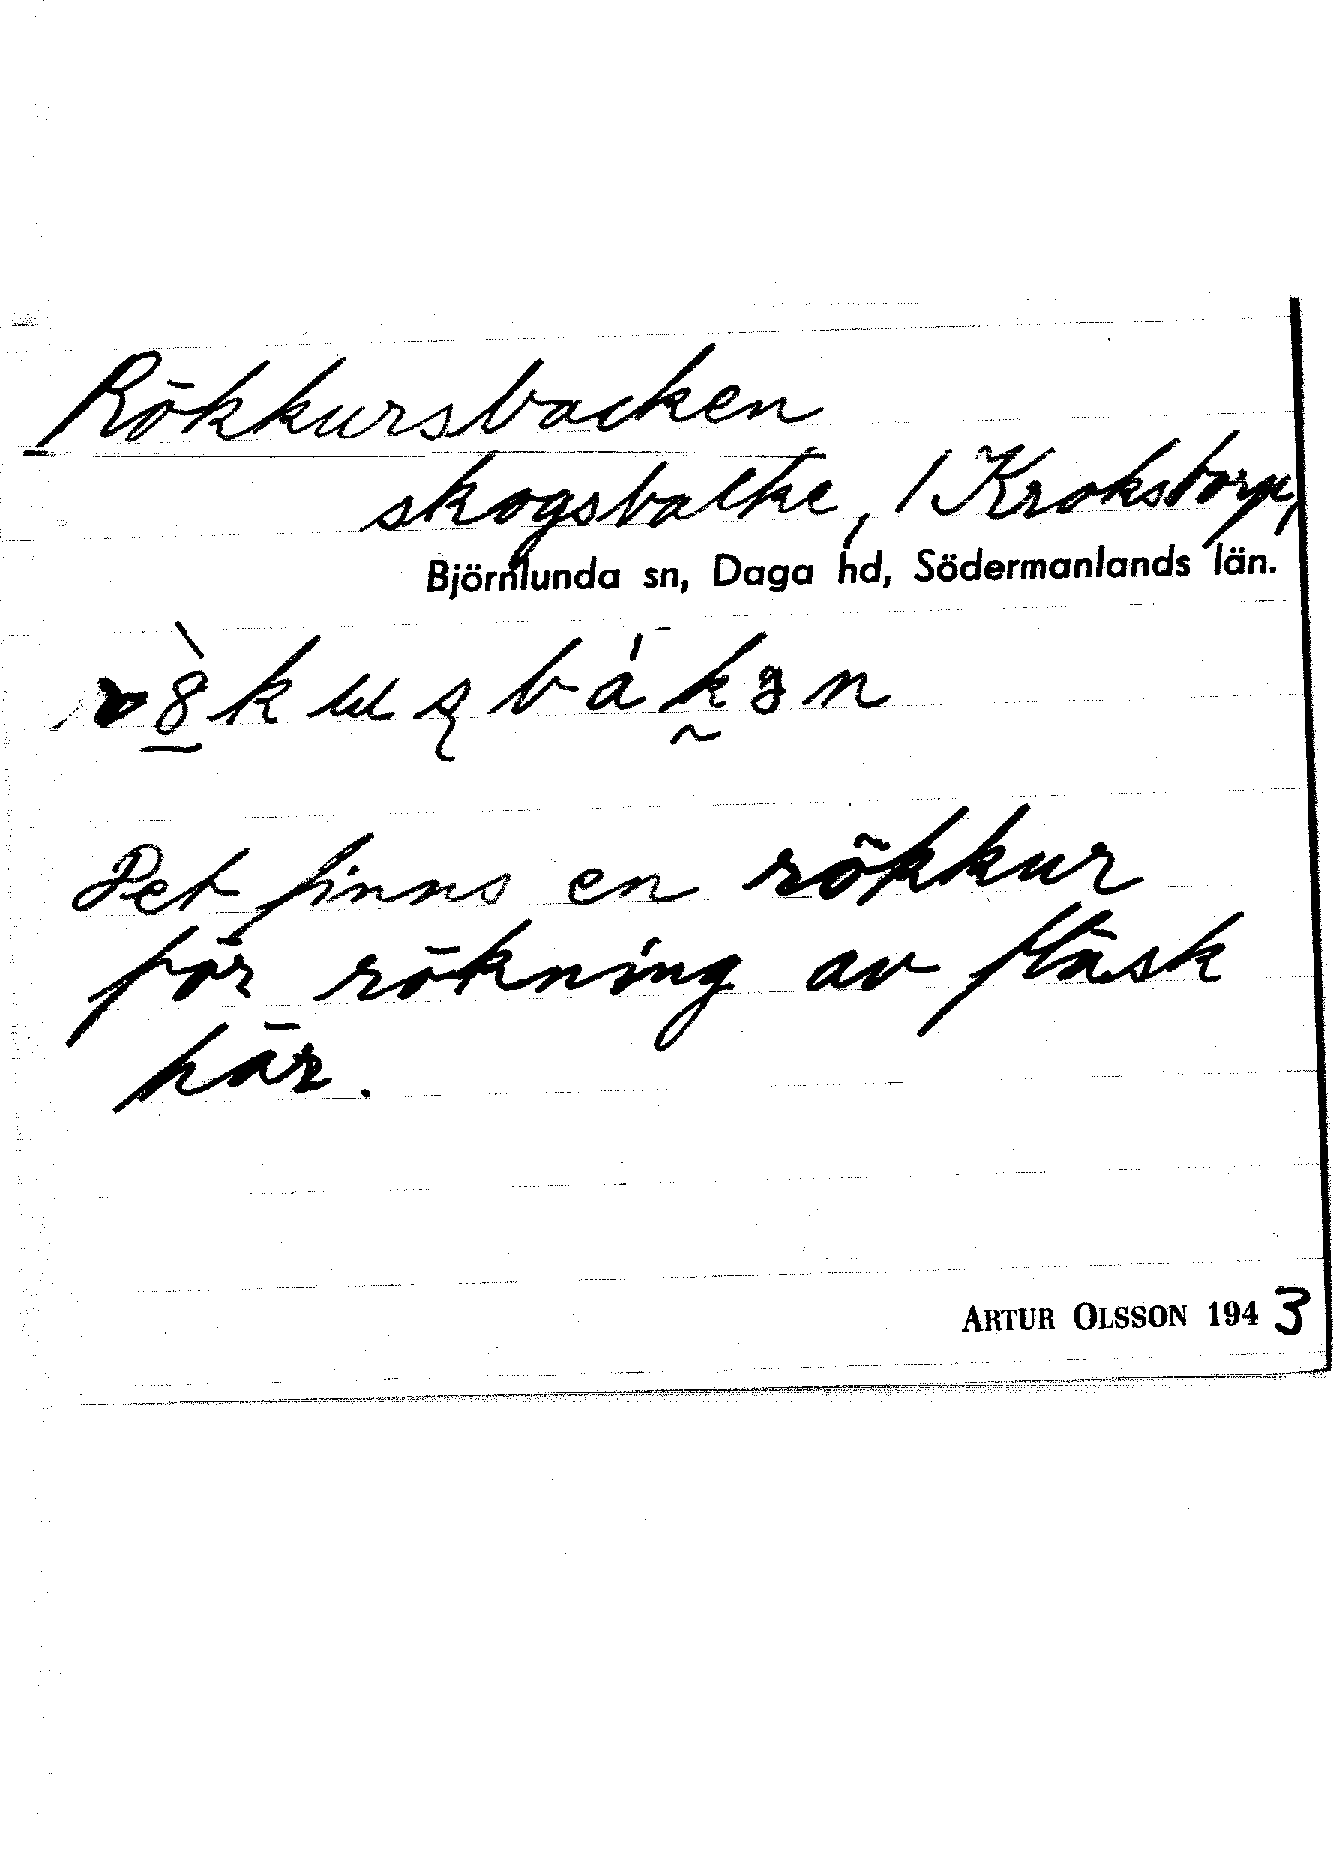 Rökkursbacken
skogsbacke, 1 Krokstorp,
Björnlunda sn, Daga hd, Södermanlands län.
Det finns en rökkur
för rökning av fläsk
här.
ARTUR OLSSON 1943